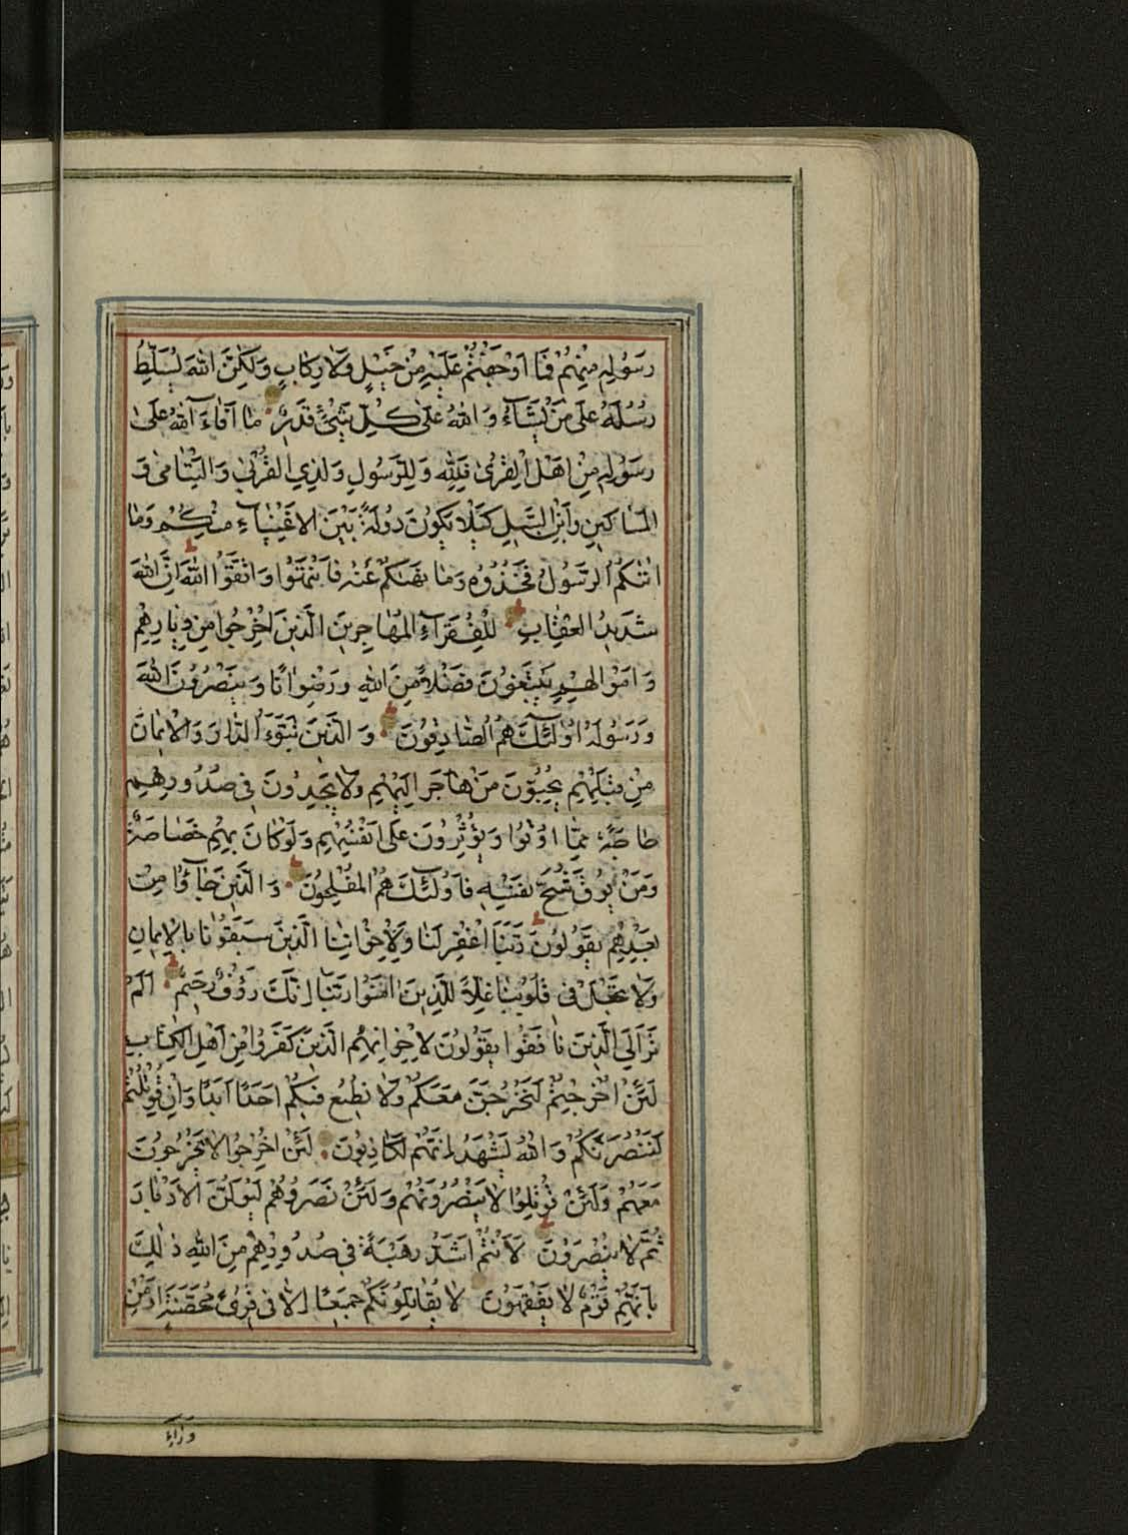 رَسُولِهِ مِنْهُمْ فَمَا اَوْجَفْتُمْ عَلَيْهِ مِنْ خَيْلٍ وَلَا رِكَابٍ وَلٰكِنَّ اللهَ يُسَلِّطُ
رُسُلَهُ عَلَى مَنْ يَشَاءُ وَ اللهُ عَلَى كُلِّ شَيْءٍ قَدِيرٌ مَا اَفَاءَ اللهُ عَلَى
رَسُولِهِ مِنْ اَهْلِ الْقُرَى فَلِلّٰهِ وَلِلرَّسُولِ وَلِذِي الْقُرْبَى وَالْيَتَامَى وَ
الْمَسَاكِينِ وَابْنِ السَّبِيلِ كَيْلَا يَكُونَ دُولَةً بَيْنَ الْاَغْنِيَاءِ مِنْكُمْ وَمَا
اٰتٰكُمُ الرَّسُولُ فَخُذُوهُ وَمَا نَهٰىكُمْ عَنْهُ فَانْتَهُوا وَاتَّقُوا اللهَ اِنَّ اللهَ
شَدِيدُ الْعِقَابِ لِلْفُقَرَاءِ الْمُهَاجِرِينَ الَّذِينَ اُخْرِجُوا مِنْ دِيَارِهِمْ
وَ اَمْوَالِهِمْ يَبْتَغُونَ فَضْلًا مِنَ اللهِ وَرِضْوَانًا وَيَنْصُرُونَ اللهَ
وَرَسُولَهُ اُولٰئِكَ هُمُ الصَّادِقُونَ وَ الَّذِينَ تَبَوَّءُ الدَّارَ وَالْاِيمَانَ
مِنْ قَبْلِهِمْ يُحِبُّونَ مَنْ هَاجَرَ اِلَيْهِمْ وَلَا يَجِدُونَ فِي صُدُورِهِمْ
حَاجَةً مِمَّا اُوتُوا وَيُؤْثِرُونَ عَلَى اَنْفُسِهِمْ وَلَوْ كَانَ بِهِمْ خَصَاصَةٌ
وَمَنْ يُوقَ شُحَّ نَفْسِهِ فَاُولٰئِكَ هُمُ الْمُفْلِحُونَ وَ الَّذِينَ جَاؤُا مِنْ
بَعْدِهِمْ يَقُولُونَ رَبَّنَا اغْفِرْ لَنَا وَلِاِخْوَانِنَا الَّذِينَ سَبَقُونَا بِالْاِيمَانِ
وَلَا تَجْعَلْ فِي قُلُوبِنَا غِلًّا لِلَّذِينَ اٰمَنُوا رَبَّنَا اِنَّكَ رَؤُفٌ رَحِيمٌ اَلَمْ
تَرَ اِلَى الَّذِينَ نَافَقُوا يَقُولُونَ لِاِخْوَانِهِمُ الَّذِينَ كَفَرُوا مِنْ اَهْلِ الْكِتَابِ
لَئِنْ اُخْرِجْتُمْ لَنَخْرُجَنَّ مَعَكُمْ وَلَا نُطِيعُ فِيكُمْ اَحَدًا اَبَدًا وَاِنْ قُوتِلْتُمْ
لَنَنْصُرَنَّكُمْ وَ اللهُ يَشْهَدُ اِنَّهُمْ لَكَاذِبُونَ لَئِنْ اُخْرِجُوا لَا يَخْرُجُونَ
مَعَهُمْ وَلَئِنْ قُوتِلُوا لَا يَنْصُرُونَهُمْ وَلَئِنْ نَصَرُوهُمْ لَيُوَلُّنَّ الْاَدْبَارَ
ثُمَّ لَا يُنْصَرُونَ لَاَنْتُمْ اَشَدُّ رَهْبَةً فِي صُدُورِهِمْ مِنَ اللهِ ذٰلِكَ
بِاَنَّهُمْ قَوْمٌ لَا يَفْقَهُونَ لَا يُقَاتِلُونَكُمْ جَمِيعًا اِلَّا فِي قُرًى مُحَصَّنَةٍ اَوْ مِنْ
وَرَاءِ